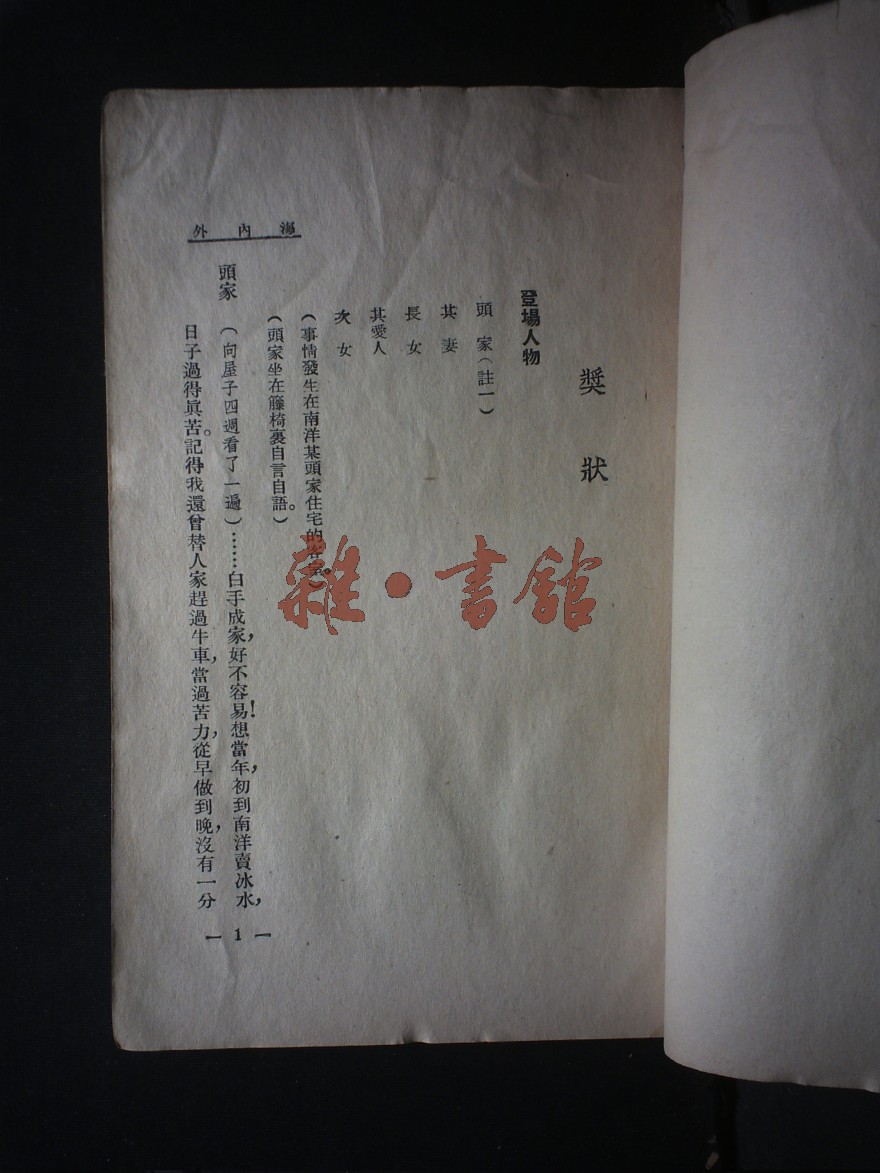 海內外
獎狀
登場人物
頭家（註一）
其妻
長女
其愛人
次女
（事情發生在南洋某頭家住宅的客室。）
（頭家坐在籐椅裏自言自語。）
頭家（向屋子四週看了一遍）……白手成家，好不容易！想當年，初到南洋賣冰水，
日子過得眞苦。記得我還曾替人家趕過牛車，當過苦力，從早做到晚，沒有一分
— 1 —
雜·書館